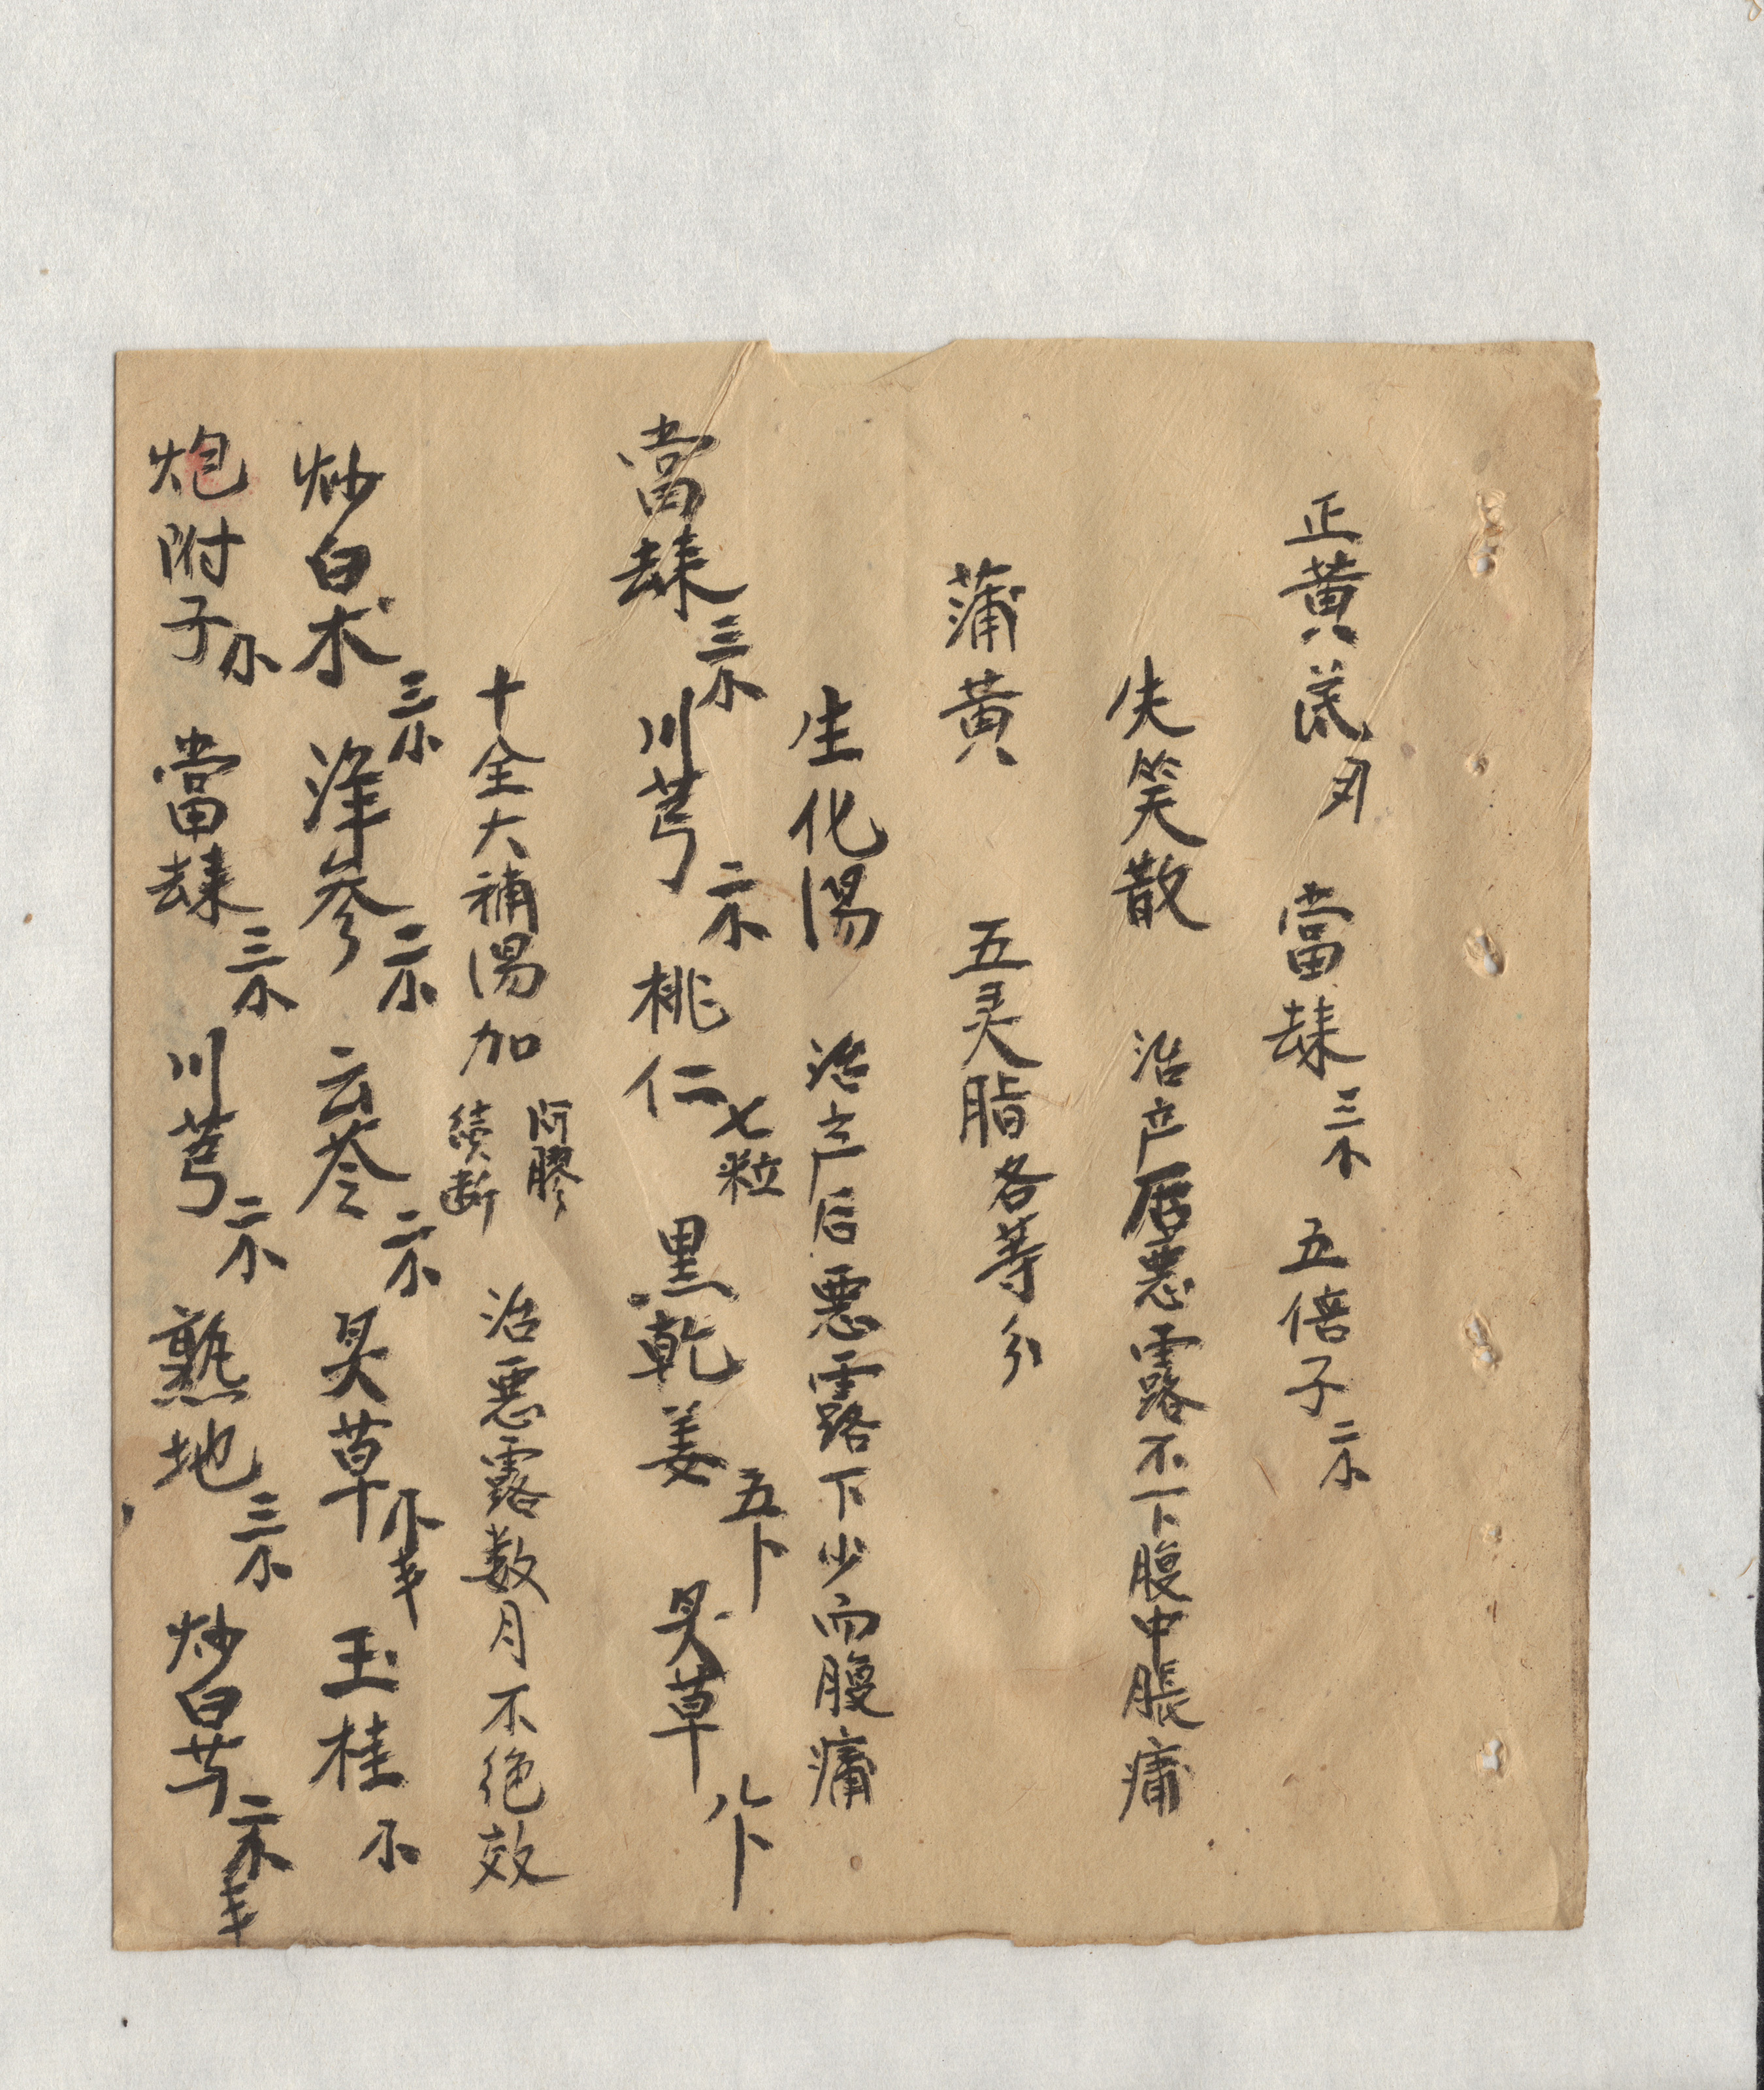 正黄芪刄 當歸三钱 五倍子二钱
失笑散 治产后惡露不下腹中脹痛
蒲黄 五灵脂各等分
生化湯 治产后惡露下少而腹痛
當歸三钱 川芎二钱 桃仁七粒 黑乾姜五卜 炙草八卜
十全大補湯加 阿膠 續断 治惡露数月不绝效
炒白术三钱 洋參二钱 云苓二钱 炙草钱半 玉桂钱
炮附子钱 當歸三钱 川芎二钱 熟地三钱 炒白芍二钱半